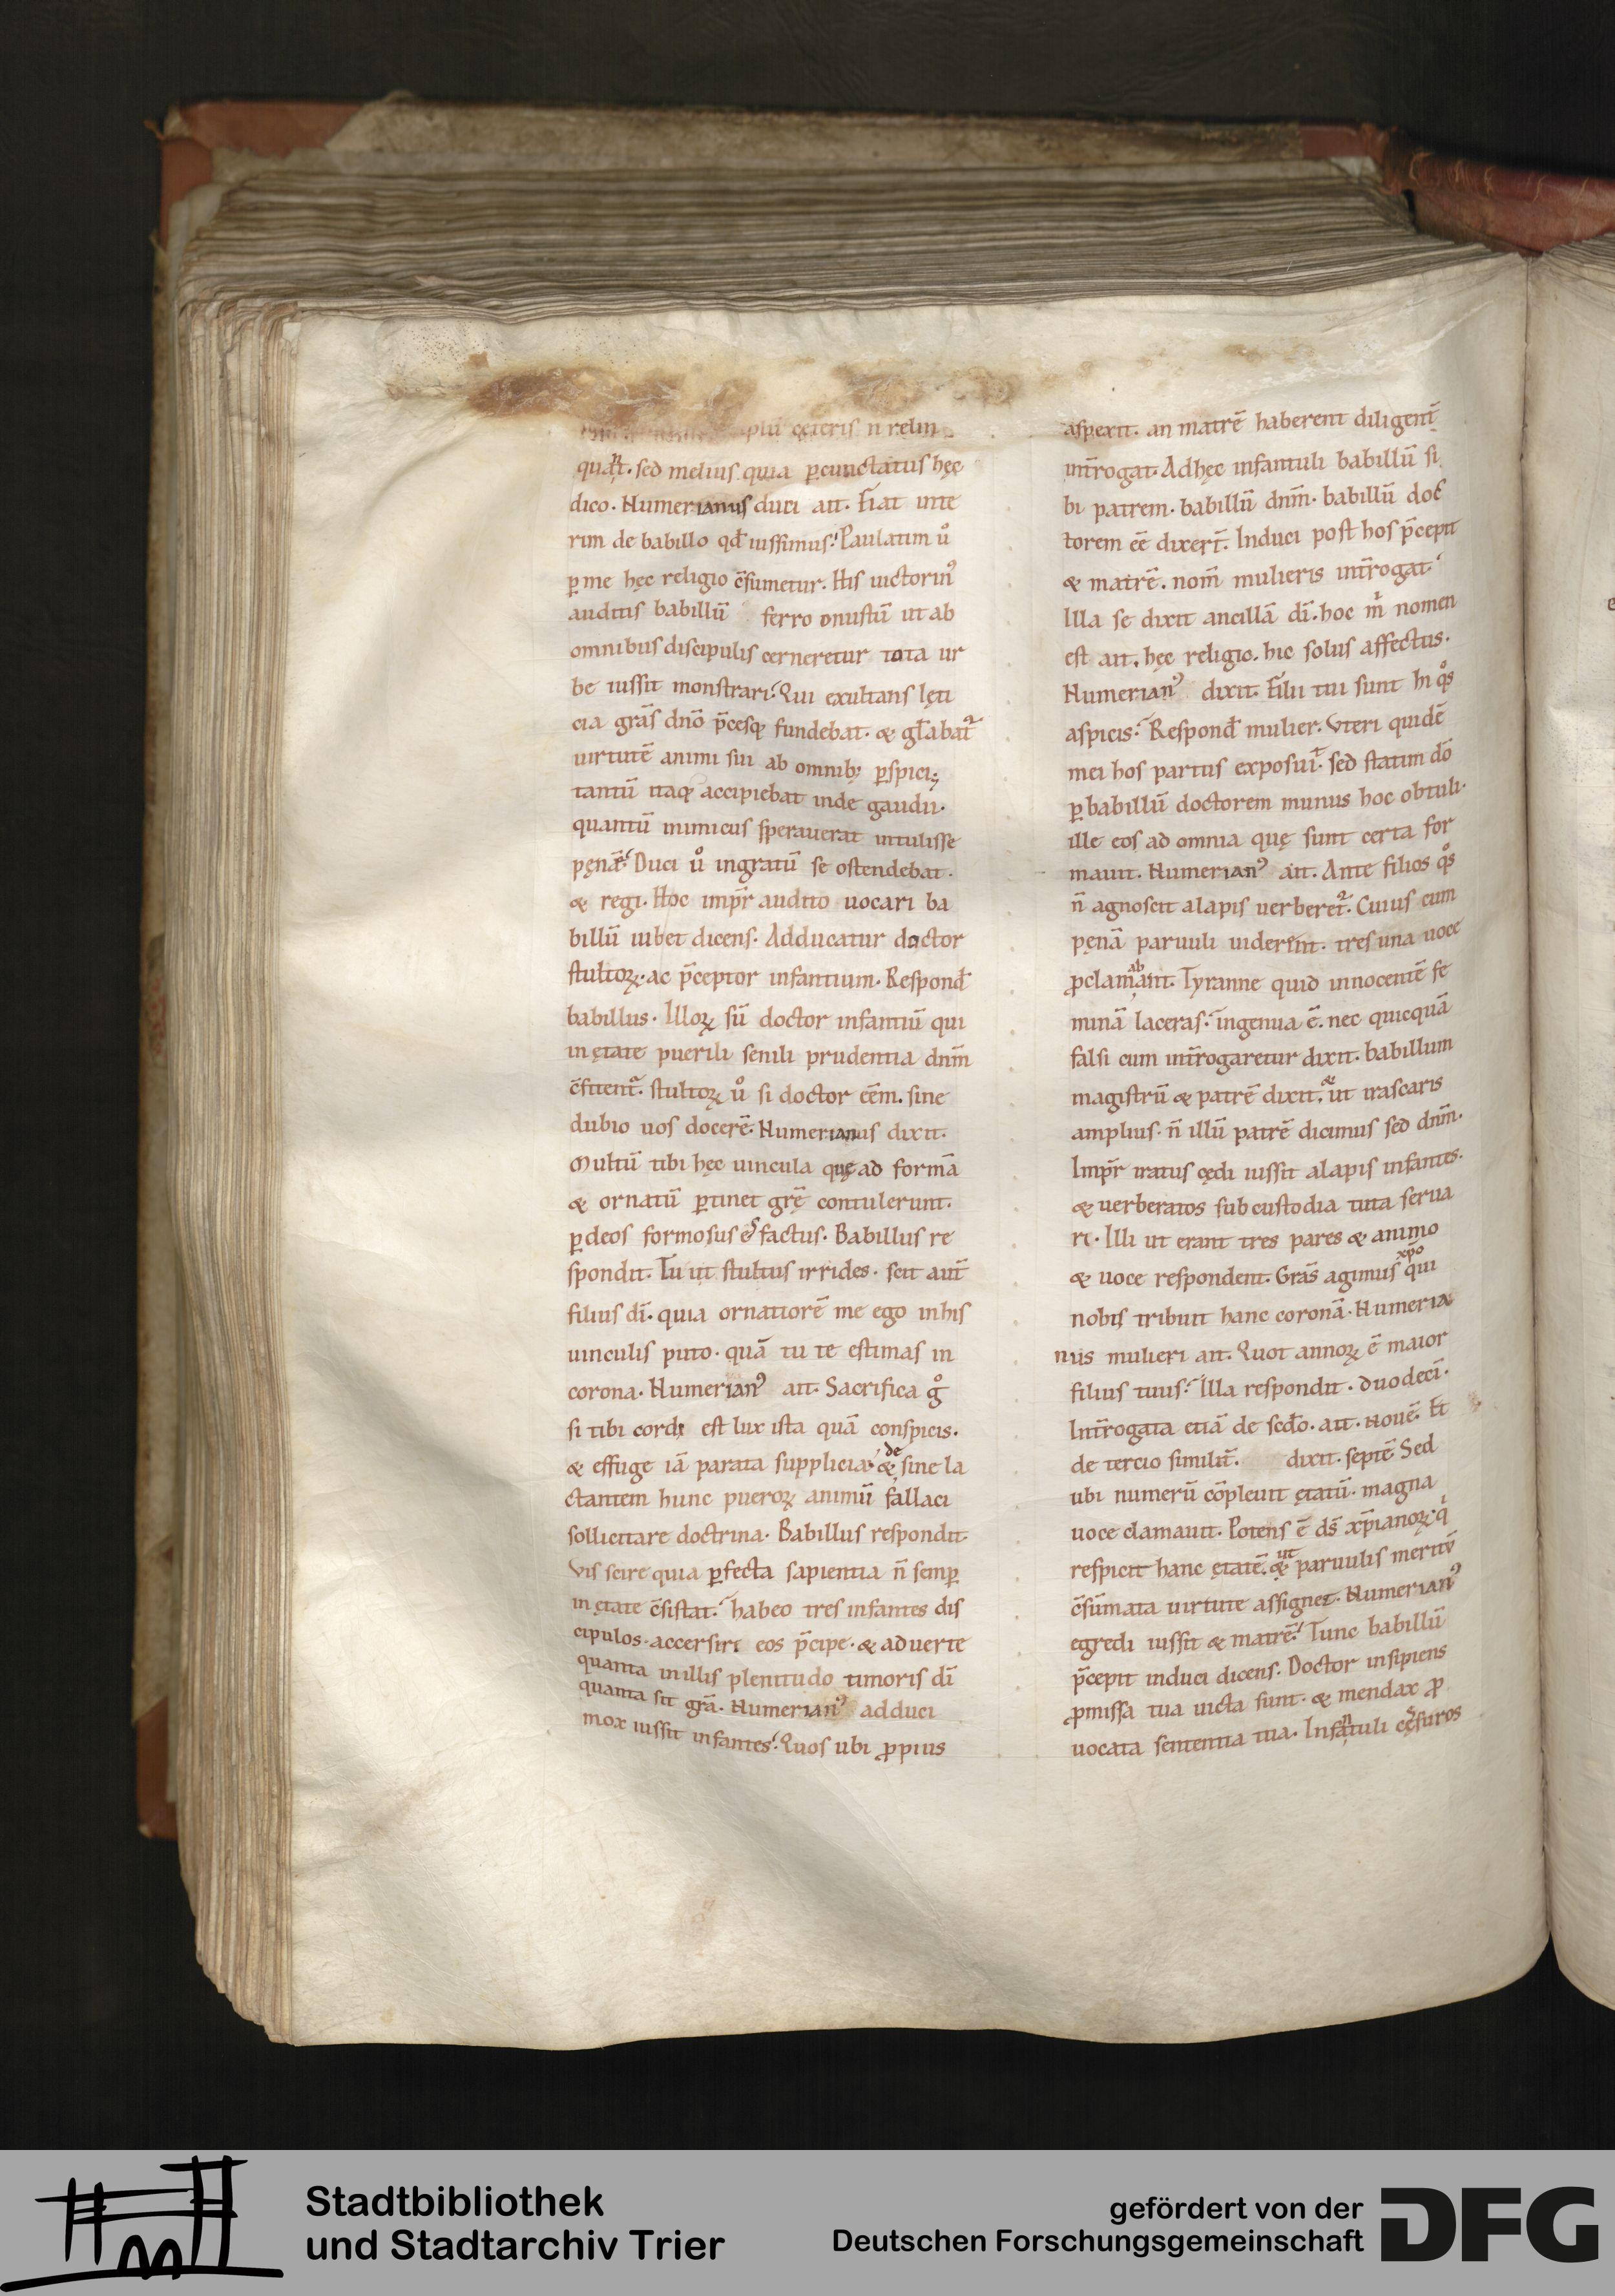 plū cęteris n̄ relin
quat. sed melius quia ꝑcunctatus hęc
dico. Numerianus duci ait. Fiat inte
rim de babillo qđ iussimus. Paulatim ů
ꝑ me hęc religio c̄sumetur. His uictorinꝰ
auditis babillū ferro onustū ut ab
omnibus discipulis cerneretur tota ur
be iussit monstrari. Qui exultans lęti
cia grās dn̄o p̄cesq; fundebat. & gl̄abat᷑
uirtutē animi sui ab omnib; ꝑspici;
tantū itaq; accipiebat inde gaudii.
quantū inimicus sperauerat intulisse
pęnā. Duci ů ingratū se ostendebat.
& regi. Hoc imp̄r audito uocari ba
billū iubet dicens. Adducatur doctor
stultoꝝ. ac p̄ceptor infantium. Respond̄
babillus. Illoꝝ sū doctor infantiū qui
in ętate puerili senili prudentia dn̄m
c̄fitent᷑. stultoꝝ ů si doctor eēm. sine
dubio uos docerē. Numerianus dixit.
Multū tibi hęc uincula quę ad formā
& ornatū ꝑtinet grę̄ contulerunt.
ꝑ deos formosus es factus. Babillus re
spondit. Tu ut stultus irrides. scit aut̄
filius dī. quia ornatiorē me ego in his
uinculis puto. quā tu te estimas in
corona. Numerianꝰ ait. Sacrifica g̊
si tibi cordi est lux ista quā conspicis.
& effuge iā parata supplicia. & desine la
ctantem hunc pueroꝝ animū fallaci
sollicitare doctrina. Babillus respondit.
Vis scire quia ꝑfecta sapientia n̄ semꝑ
in ętate c̄sistat. habeo tres infantes dis
cipulos. accersiri eos p̄cipe. & aduerte
quanta in illis plenitudo timoris dī
quanta sit grā. Numerianꝰ adduci
mox iussit infantes. Quos ubi ꝓpius
aspexit. an matrē haberent diligent̄
int̄rogat. Ad hęc infantuli babillū si
bi patrem. babillū dn̄m. babillū doc
torem eē dixer̄t. Induci post hos p̄cepit
& matrē. nom̄ mulieris int̄rogat.
Illa se dixit ancillā dī. hoc m̍ nomen
est ait. hęc religio. hic solus affectus.
Numerianꝰ dixit. Filii tui sunt hi q̊s
aspicis. Respond̄ mulier. Vteri quidē
mei hos partus exposuit. sed statim dō
ꝑ babillū doctorem munus hoc obtuli.
ille eos ad omnia quę sunt certa for
mauit. Numerianꝰ ait. Ante filios q̊s
n̄ agnoscit alapis uerberet᷑. Cuius cum
pęnā paruuli uiderent. tres una uoce
ꝓclamabant. Tyranne quid innocentē fe
minā laceras. ingenua ē. nec quicquā
falsi cum int̄rogaretur dixit. babillum
magistrū & patrē dixit. & ut irascaris
amplius. n̄ illū patrē dicimus sed dn̄m.
Imp̄r iratus cędi iussit alapis infantes.
& uerberatos sub custodia tuta serua
ri. Illi ut erant tres pares & animo
& uoce respondent. Grās agimus xp̄o qui
nobis tribuit hanc coronā. Numeria
nus mulieri ait. Quot annoꝝ ē maior
filius tuus. Illa respondit. duodecī.
Int̄rogata etiā de scd̄o. ait. nouē. Et
de tercio similit̄. dixit. septē. Sed
ubi numerū cōpleuit ętatū. magna
uoce clamauit. Potens ē ds̄ xp̄ianoꝝ. q̍
respicit hanc ętatē. & ut paruulis meritū
c̄sūmata uirtute assignet. Numerianꝰ
egredi iussit & matrē. Tunc babillū
p̄cepit induci dicens. Doctor insipiens
ꝓmissa tua uicta sunt. & mendax ꝓ
uocata sententia tua. Infantuli c̄sęsuros
Stadtbibliothek
und Stadtarchiv Trier
gefördert von der
Deutschen Forschungsgemeinschaft
DFG